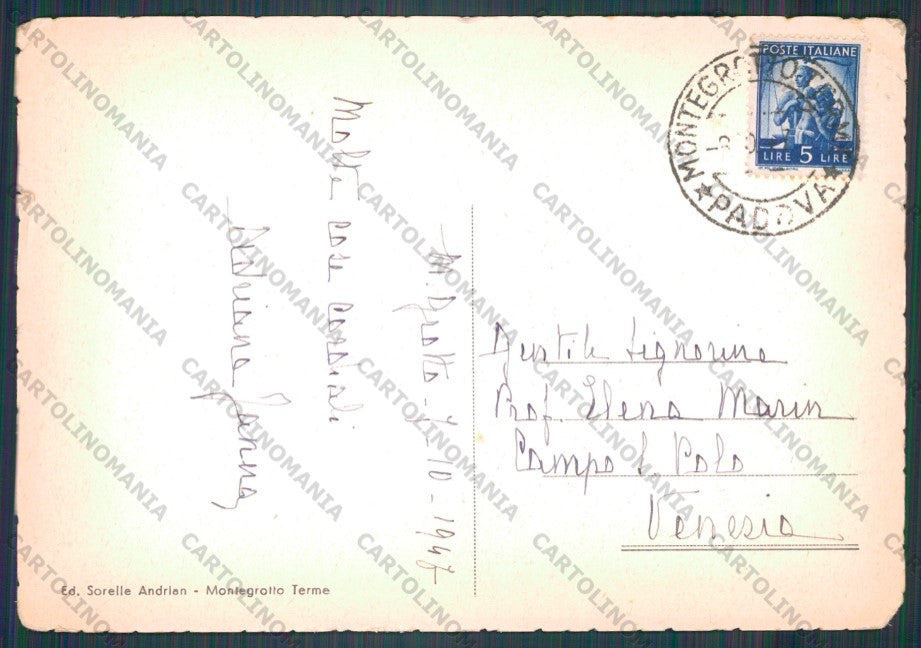 POSTE ITALIANE
LIRE 5 LIRE
MONTEGROTTO TERME
★ PADOVA ★
M. Grotto - 7-10-1947
Molte cose cordiali
Gentile Signorina
Prof. Elena Marin
Campo S. Polo
Venezia
Ed. Sorelle Andrian - Montegrotto Terme
CARTOLINOMANIA